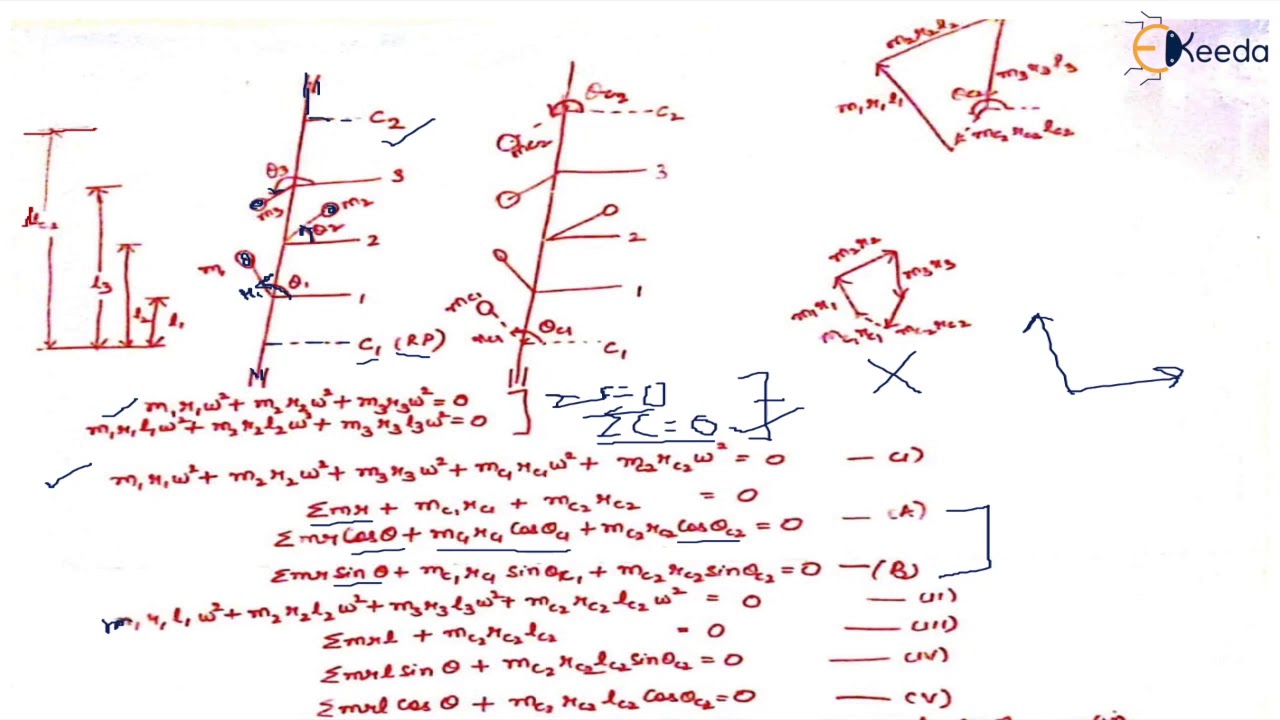 EKeeda
m2r2l2
m3r3l3
m1r1l1
θc2
mc2rc2lc2
lc2
l3
l2
l1
C2
θ3
3
m3
m2
θ2
2
m1
r1
θ1
1
C1 (RP)
θc2
C2
mc2
3
2
1
mc1
rc1
θc1
C1
m2r2
m3r3
m1r1
mc1rc1
mc2rc2
m1r1ω² + m2r2ω² + m3r3ω² = 0
m1r1l1ω² + m2r2l2ω² + m3r3l3ω² = 0
ΣC = 0
m1r1ω² + m2r2ω² + m3r3ω² + mc1rc1ω² + mc2rc2ω² = 0 — (I)
Σmr + mc1rc1 + mc2rc2 = 0
Σmr cosθ + mc1rc1 cosθc1 + mc2rc2 cosθc2 = 0 — (A)
Σmr sinθ + mc1rc1 sinθc1 + mc2rc2 sinθc2 = 0 — (B)
m1r1l1ω² + m2r2l2ω² + m3r3l3ω² + mc2rc2lc2ω² = 0 — (II)
Σmrl + mc2rc2lc2 = 0 — (III)
Σmrl sinθ + mc2rc2lc2 sinθc2 = 0 — (IV)
Σmrl cosθ + mc2rc2lc2 cosθc2 = 0 — (V)